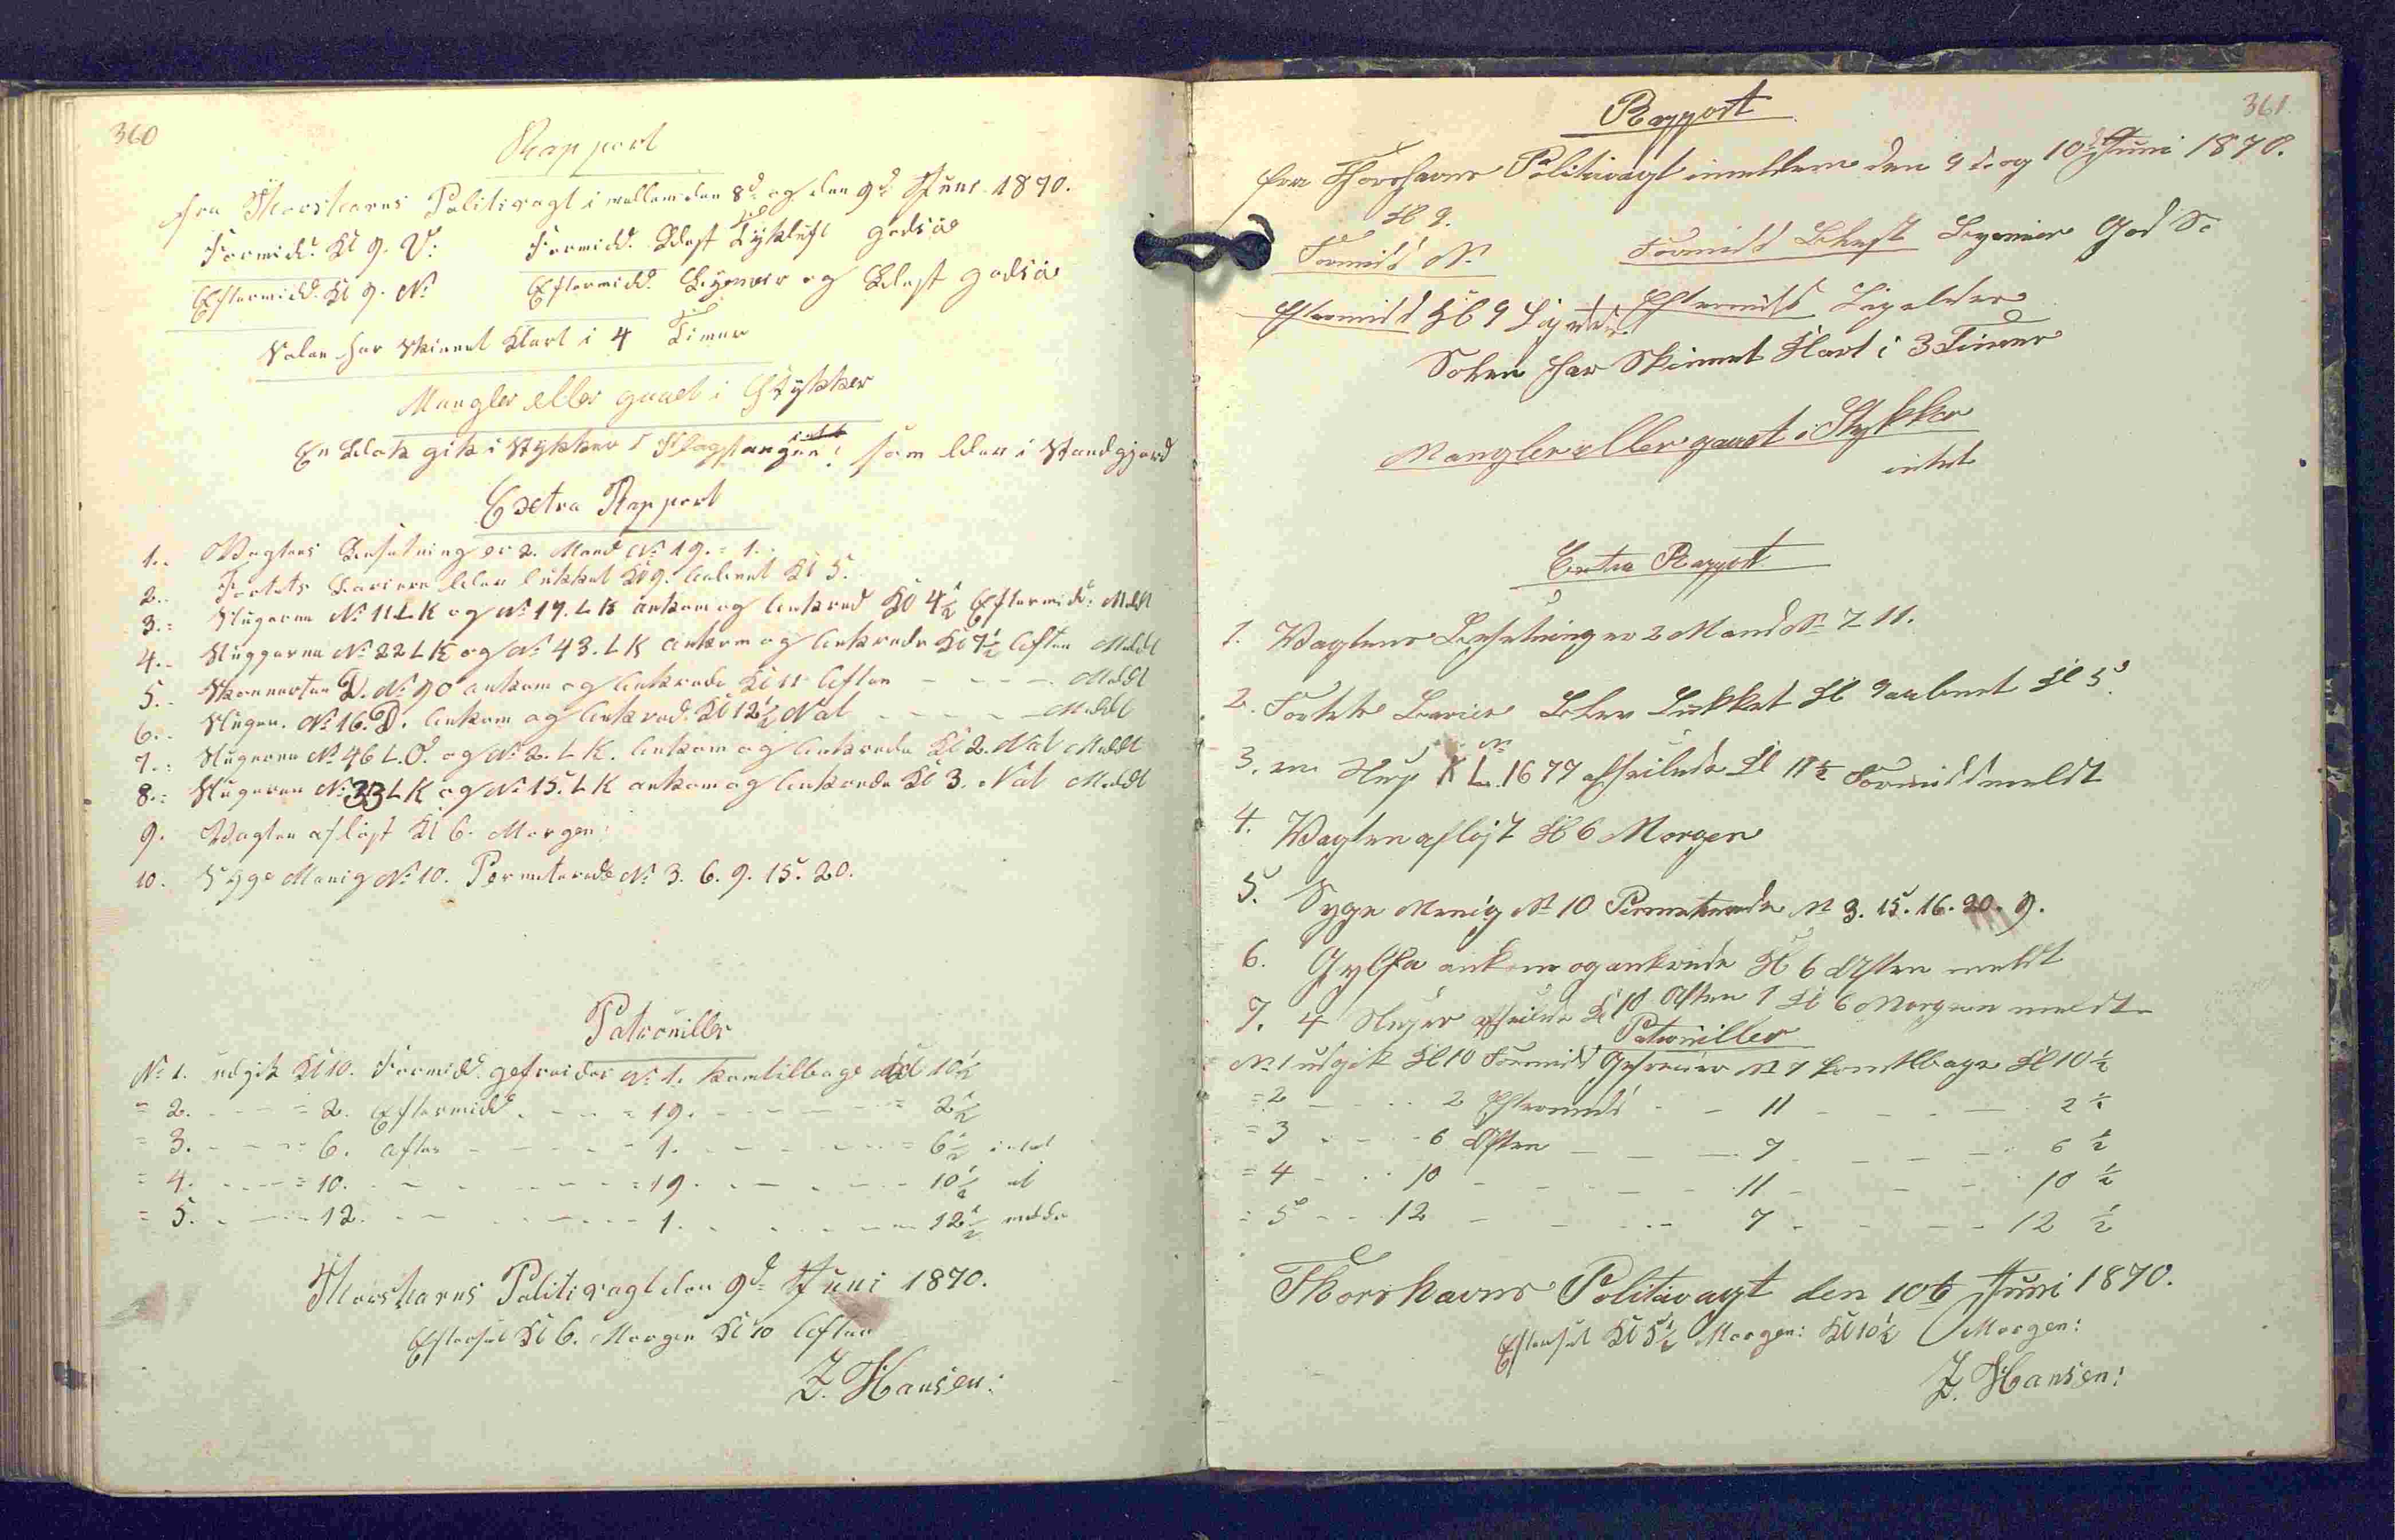 360
Rapport
fra Thorshavns Politivagt i mellem den 8d og den 9d Juni 1870.
Formidd. Kl 9. V: Formidd. Blæst Tyklüft godsiø
Eftermidd. Kl 9. N: Eftermidd. Bÿgevær og Blæst godsiø
Solen har Skinnet Klart i 4 Timer
Mangler eller gaaet i Stÿkker
En Blok gik i Stÿkker i Flagstangen: som blev i Standgjord
Extra Rapport
1. Vagtens Besætning er 2. Mand No 19. = 1.
2. Fortets Bariere blev lükket Kl 9. aabnet Kl 5.
3. Slügerne No 11 L K og No 19. L K ankom og ankred Kl 4½ Eftermidd: Meldt
4. Slüggerne No 22 L K og No 43. L K ankom og ankrede Kl 7½ Aften Meldt
5. Skonnerten D. No 90 ankom og ankrede Kl 11 Aften - - - - Meldt
6. Slügen. No 16. D. ankom og ankred. Kl 12½ Nat - - - - Meldt
7. Slügerne No 46 L. O. og No 2. L K. ankom og ankrede Kl 2. Nat Meldt
8. Slügerne No 33 L K og No 15. L K ankom og ankrede Kl 3. Nat Meldt
9. Vagten afløst Kl 6. Morgen:
10. Syge Menig No 10. Permeterede No 3. 6. 9. 15. 20.
Patrouiller
No 1. udgik Kl 10. Formidd. gefreider No 1. kom tilbage Kl 10½
= 2. - - - = 2. Eftermidd. - - - = 19. - - - - - = 2½
= 3. - - - = 6. Aften - - - - 1. - - - - - = 6½ intet
= 4. - - - = 10. - - - - - = 19. - - - - - 10½ at
= 5. - - - 12. - - - - - - 1. - - - - - 12½ melde
Thorshavns Politivagt den 9d Juni 1870.
Eftersat Kl 6. Morgen Kl 10 Aften
Z. Hansen:
361.
Rapport
fra Thorshavns Politivagt imellem den 9 d. og 10 d Juni 1870.
Kl 9.
Formidd N. Formidd Blæst Bygevær God Sø
Eftermidd Kl 9 Eftermidd
Solen har Skinnet Klart i 3 Timer
Mangler eller gaaet i Stykker
intet
Extra Rapport
1. Vagtens Besætning er 2 Mand No 7 11.
2. Fortets Barier Blev Lukket Kl 9 aabnet Kl 5.
3. en Slup K L. No 1677 afseilede Kl 11½ Formidd meldt
4. Vagten afløst Kl 6 Morgen
5. Syge Menig No 10 Permeterede No 3. 15. 16. 20. 9.
6. Gylfa ankom og ankrede Kl 6 Aften meldt
7. 4 Sluper afseilede Kl 10 Aften 1 Kl 6 Morgen meldt
Patrouiller
No 1 udgik Kl 10 Formidd Gefreider No 7 kom tilbage Kl 10½
= 2 - - - 2 Eftermidd - - 11 - - - - 2½
= 3 - - - 6 Aften - - - 7 - - - - 6½
= 4 - - - 10 - - - - - 11 - - - 10½
= 5 - - 12 - - - - 7 - - - - 12½
Thorshavns Politivagt den 10d Juni 1870.
Eftersat Kl 5½ Morgen: Kl 10½ Morgen:
Z. Hansen: